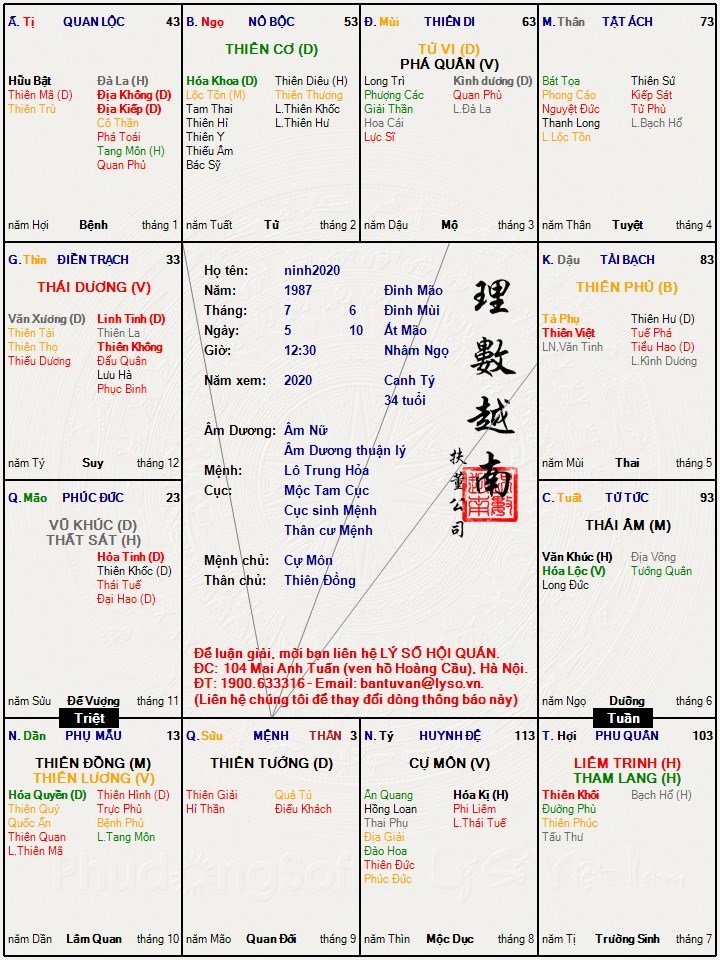 Á. Tị QUAN LỘC 43
Hữu Bật
Thiên Mã (D)
Thiên Trù
Đà La (H)
Địa Không (D)
Địa Kiếp (D)
Cô Thần
Phá Toái
Tang Môn (H)
Quan Phủ
năm Hợi Bệnh tháng 1
B. Ngọ NÔ BỘC 53
THIÊN CƠ (D)
Hóa Khoa (D)
Lộc Tồn (M)
Tam Thai
Thiên Hỉ
Thiên Y
Thiếu Âm
Bác Sỹ
Thiên Diêu (H)
Thiên Thương
L.Thiên Khốc
L.Thiên Hư
năm Tuất Tử tháng 2
Đ. Mùi THIÊN DI 63
TỬ VI (D)
PHÁ QUÂN (V)
Long Trì
Phượng Các
Giải Thần
Hoa Cái
Lực Sĩ
Kình dương (D)
Quan Phù
L.Đà La
năm Dậu Mộ tháng 3
M. Thân TẬT ÁCH 73
Bát Tọa
Phong Cáo
Nguyệt Đức
Thanh Long
L.Lộc Tồn
Thiên Sứ
Kiếp Sát
Tử Phù
L.Bạch Hổ
năm Thân Tuyệt tháng 4
G. Thìn ĐIỀN TRẠCH 33
THÁI DƯƠNG (V)
Văn Xương (D)
Thiên Tài
Thiên Thọ
Thiếu Dương
Linh Tinh (D)
Thiên La
Thiên Không
Đẩu Quân
Lưu Hà
Phục Binh
năm Tý Suy tháng 12
Họ tên: ninh2020
Năm: 1987 Đinh Mão
Tháng: 7 6 Đinh Mùi
Ngày: 5 10 Ất Mão
Giờ: 12:30 Nhâm Ngọ
Năm xem: 2020 Canh Tý
34 tuổi
Âm Dương: Âm Nữ
Âm Dương thuận lý
Mệnh: Lô Trung Hỏa
Cục: Mộc Tam Cục
Cục sinh Mệnh
Thân cư Mệnh
Mệnh chủ: Cự Môn
Thân chủ: Thiên Đồng
理數越南
扶董公司
Để luận giải, mời bạn liên hệ LÝ SỐ HỘI QUÁN.
ĐC: 104 Mai Anh Tuấn (ven hồ Hoàng Cầu), Hà Nội.
ĐT: 1900.633316 - Email: bantuvan@lyso.vn.
(Liên hệ chúng tôi để thay đổi dòng thông báo này)
K. Dậu TÀI BẠCH 83
THIÊN PHỦ (B)
Tả Phụ
Thiên Việt
LN.Văn Tinh
Thiên Hư (D)
Tuế Phá
Tiểu Hao (D)
L.Kình Dương
năm Mùi Thai tháng 5
Q. Mão PHÚC ĐỨC 23
VŨ KHÚC (D)
THẤT SÁT (H)
Hỏa Tinh (D)
Thiên Khốc (D)
Thái Tuế
Đại Hao (D)
năm Sửu Đế Vượng tháng 11
C. Tuất TỬ TỨC 93
THÁI ÂM (M)
Văn Khúc (H)
Hóa Lộc (V)
Long Đức
Địa Võng
Tướng Quân
năm Ngọ Dưỡng tháng 6
Triệt
Tuần
N. Dần PHỤ MẪU 13
THIÊN ĐỒNG (M)
THIÊN LƯƠNG (V)
Hóa Quyền (D)
Thiên Quý
Quốc Ấn
Thiên Quan
L.Thiên Mã
Thiên Hình (D)
Trực Phù
Bệnh Phù
L.Tang Môn
năm Dần Lâm Quan tháng 10
Q. Sửu MỆNH THÂN 3
THIÊN TƯỚNG (D)
Thiên Giải
Hỉ Thần
Quả Tú
Điếu Khách
năm Mão Quan Đới tháng 9
N. Tý HUYNH ĐỆ 113
CỰ MÔN (V)
Ân Quang
Hồng Loan
Thai Phụ
Địa Giải
Đào Hoa
Thiên Đức
Phúc Đức
Hóa Kị (H)
Phi Liêm
L.Thái Tuế
năm Thìn Mộc Dục tháng 8
T. Hợi PHU QUÂN 103
LIÊM TRINH (H)
THAM LANG (H)
Thiên Khôi
Đường Phù
Thiên Phúc
Tấu Thư
Bạch Hổ (H)
năm Tị Trường Sinh tháng 7